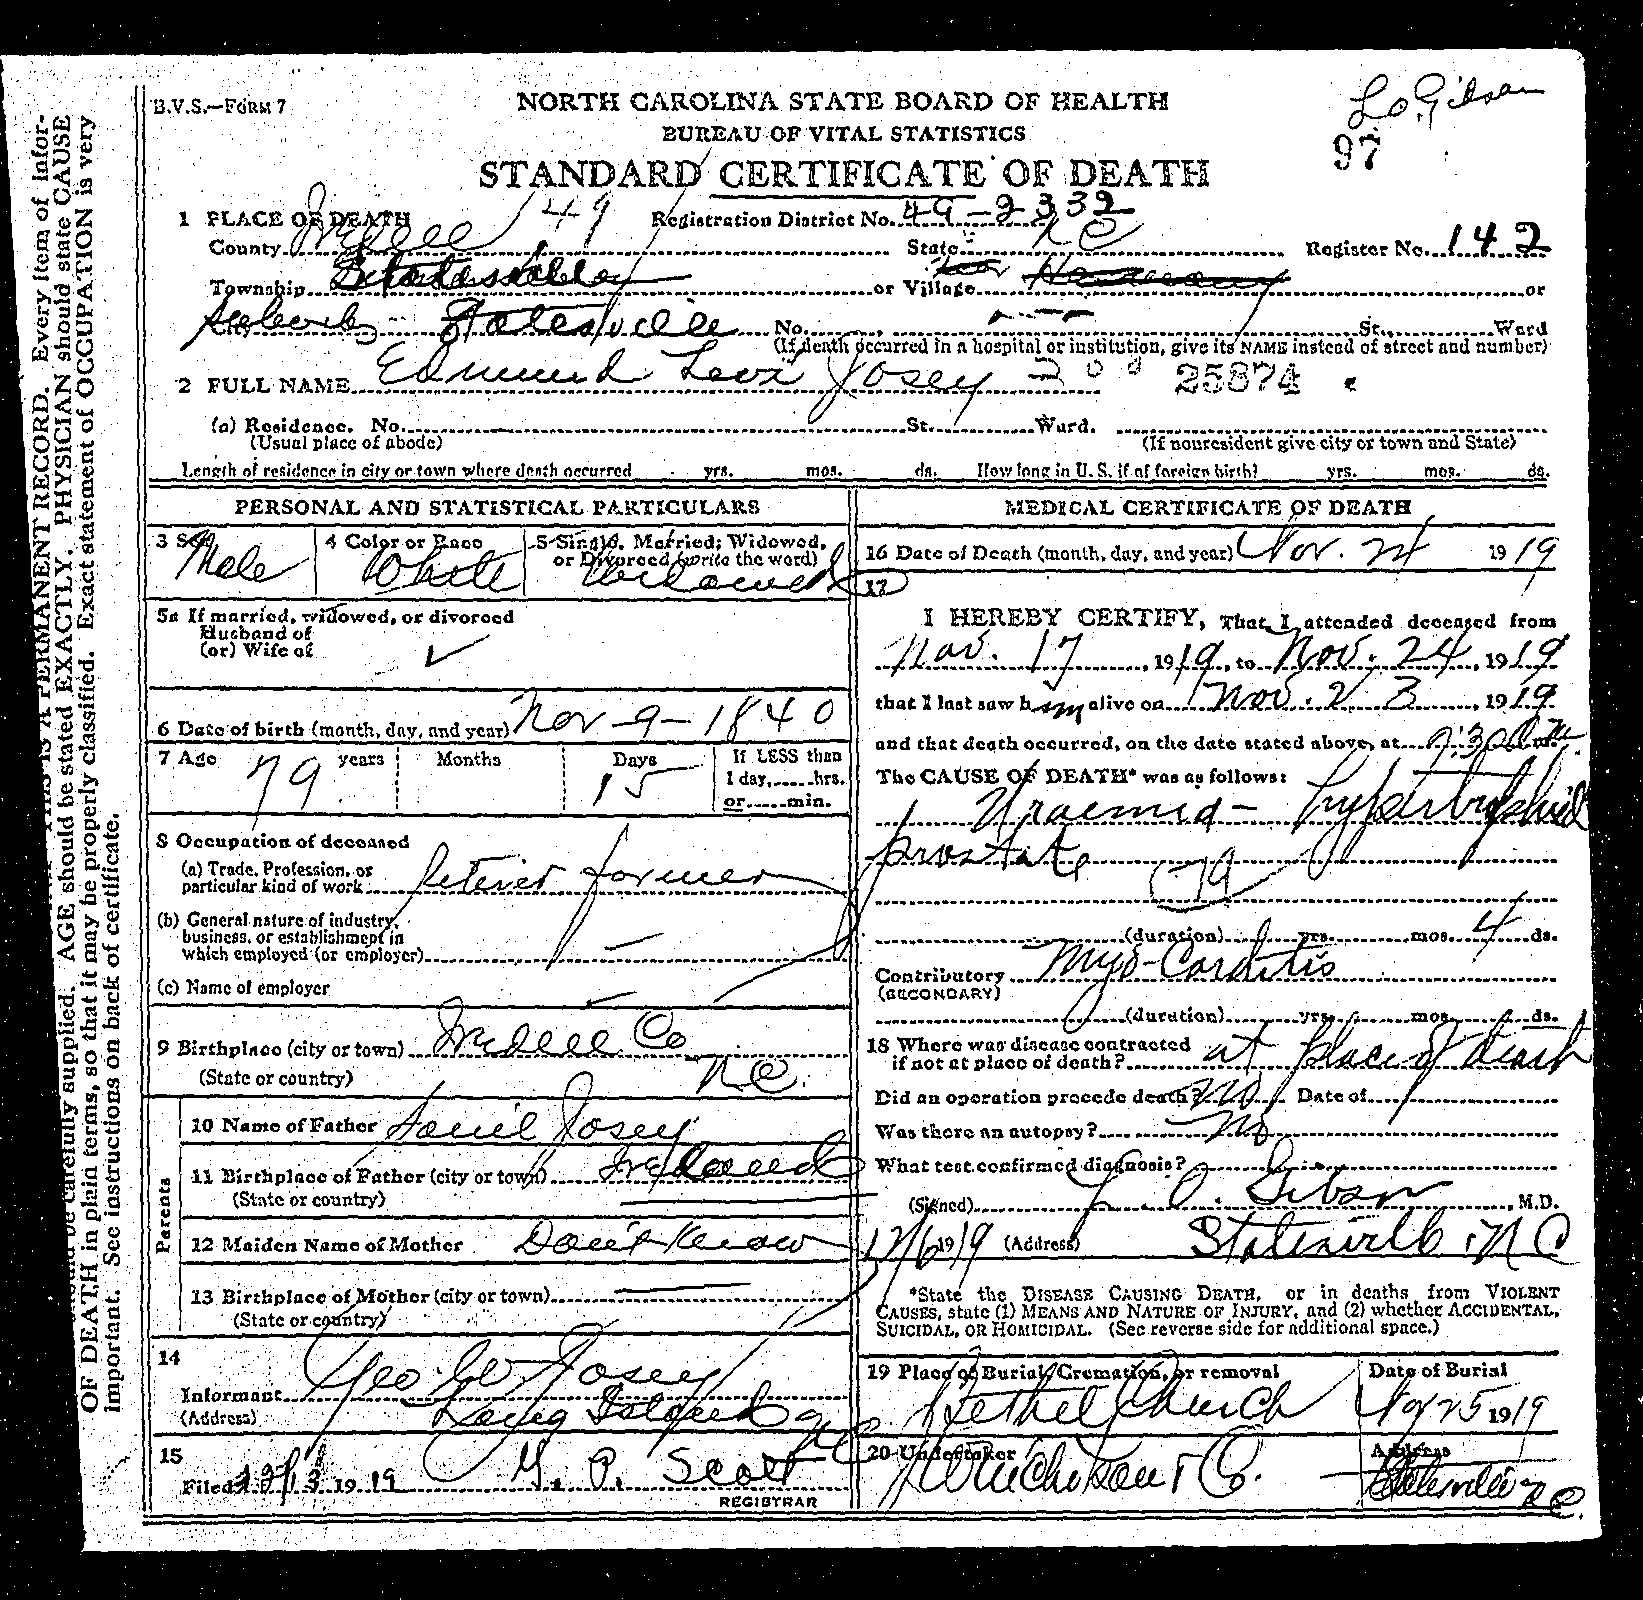 B.V.S.—FORM 7
NORTH CAROLINA STATE BOARD OF HEALTH
BUREAU OF VITAL STATISTICS
STANDARD CERTIFICATE OF DEATH
L.O. Gibson
97
1 PLACE OF DEATH 49 Registration District No. 49-2332
County Iredell State N C Register No. 142
Township Statesville or Village or
Statesville No. St. Ward
(If death occurred in a hospital or institution, give its NAME instead of street and number)
2 FULL NAME Edmund Levi Josey 25874
(a) Residence. No. St. Ward.
(Usual place of abode) (If nonresident give city or town and State)
Length of residence in city or town where death occurred yrs. mos. ds. How long in U. S. if of foreign birth? yrs. mos. ds.
PERSONAL AND STATISTICAL PARTICULARS
3 Sex Male
4 Color or Race White
5 Single, Married, Widowed, or Divorced (write the word) Widowed
5a If married, widowed, or divorced
Husband of
(or) Wife of
6 Date of birth (month, day, and year) Nov-9-1840
7 Age 79 years Months Days 15 If LESS than
1 day, hrs.
or min.
8 Occupation of deceased
(a) Trade, Profession, or
particular kind of work Retired farmer
(b) General nature of industry,
business, or establishment in
which employed (or employer)
(c) Name of employer
9 Birthplace (city or town) Iredell Co
(State or country) N C.
Parents
10 Name of Father Josey
11 Birthplace of Father (city or town)
(State or country)
12 Maiden Name of Mother Dont Know
13 Birthplace of Mother (city or town)
(State or country)
14
Informant Geo. W Josey
(Address)
15
Filed 12/13 1919 Scott
REGISTRAR
MEDICAL CERTIFICATE OF DEATH
16 Date of Death (month, day, and year) Nov. 24 1919
17
I HEREBY CERTIFY, That I attended deceased from
Nov. 17, 1919, to Nov. 24, 1919
that I last saw him alive on Nov. 23, 1919
and that death occurred, on the date stated above, at 7:30 m.
The CAUSE OF DEATH* was as follows:
Uraemia - hypertrophied
prostate
(duration) yrs. mos. 4 ds.
Contributory Myo-Carditis
(SECONDARY)
(duration) yrs. mos. ds.
18 Where was disease contracted
if not at place of death? at place of death
Did an operation precede death? no Date of
Was there an autopsy? no
What test confirmed diagnosis?
(Signed) L. O. Gibson, M.D.
12/6 1919 (Address) Statesville, N C
*State the DISEASE CAUSING DEATH, or in deaths from VIOLENT
CAUSES, state (1) MEANS AND NATURE OF INJURY, and (2) whether ACCIDENTAL,
SUICIDAL, OR HOMICIDAL. (See reverse side for additional space.)
19 Place of Burial, Cremation, or removal Date of Burial
Bethel Church Nov 25 1919
20 Undertaker Address
Nicholson & Co. Statesville N C.
OF DEATH in plain terms, so that it may be properly classified. Exact statement of OCCUPATION is very
important. See instructions on back of certificate.